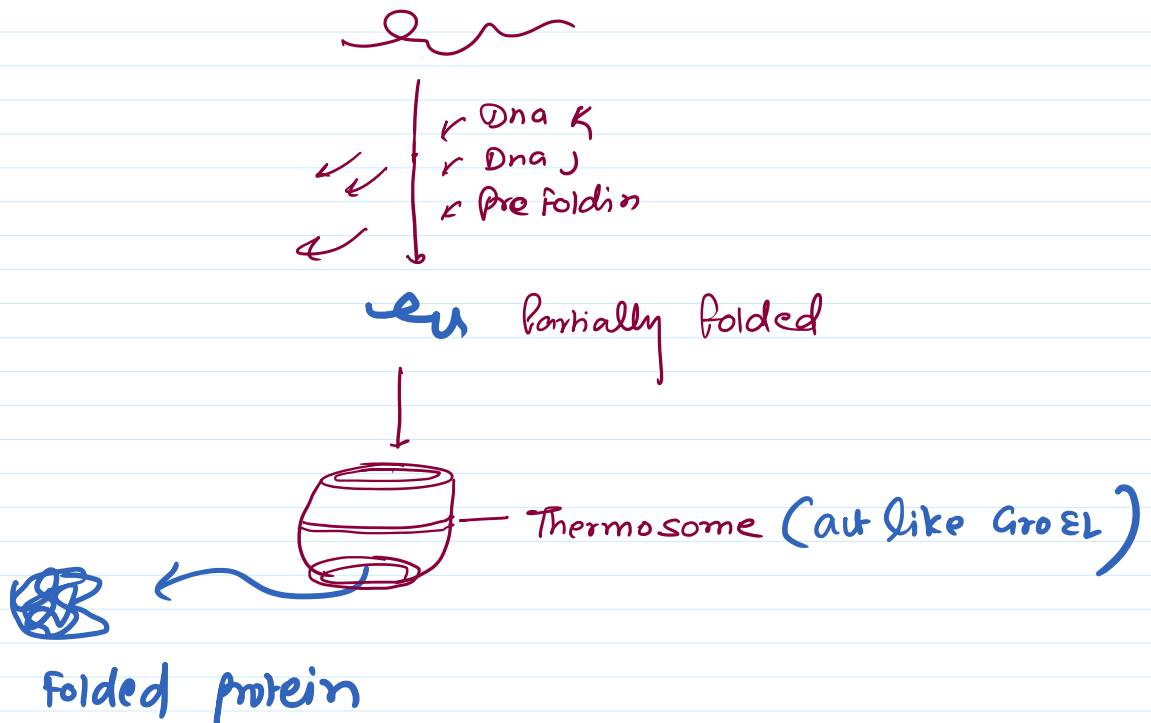 Dna K
Dna J
Prefoldin
Partially folded
Thermosome (act like GroEL)
Folded protein